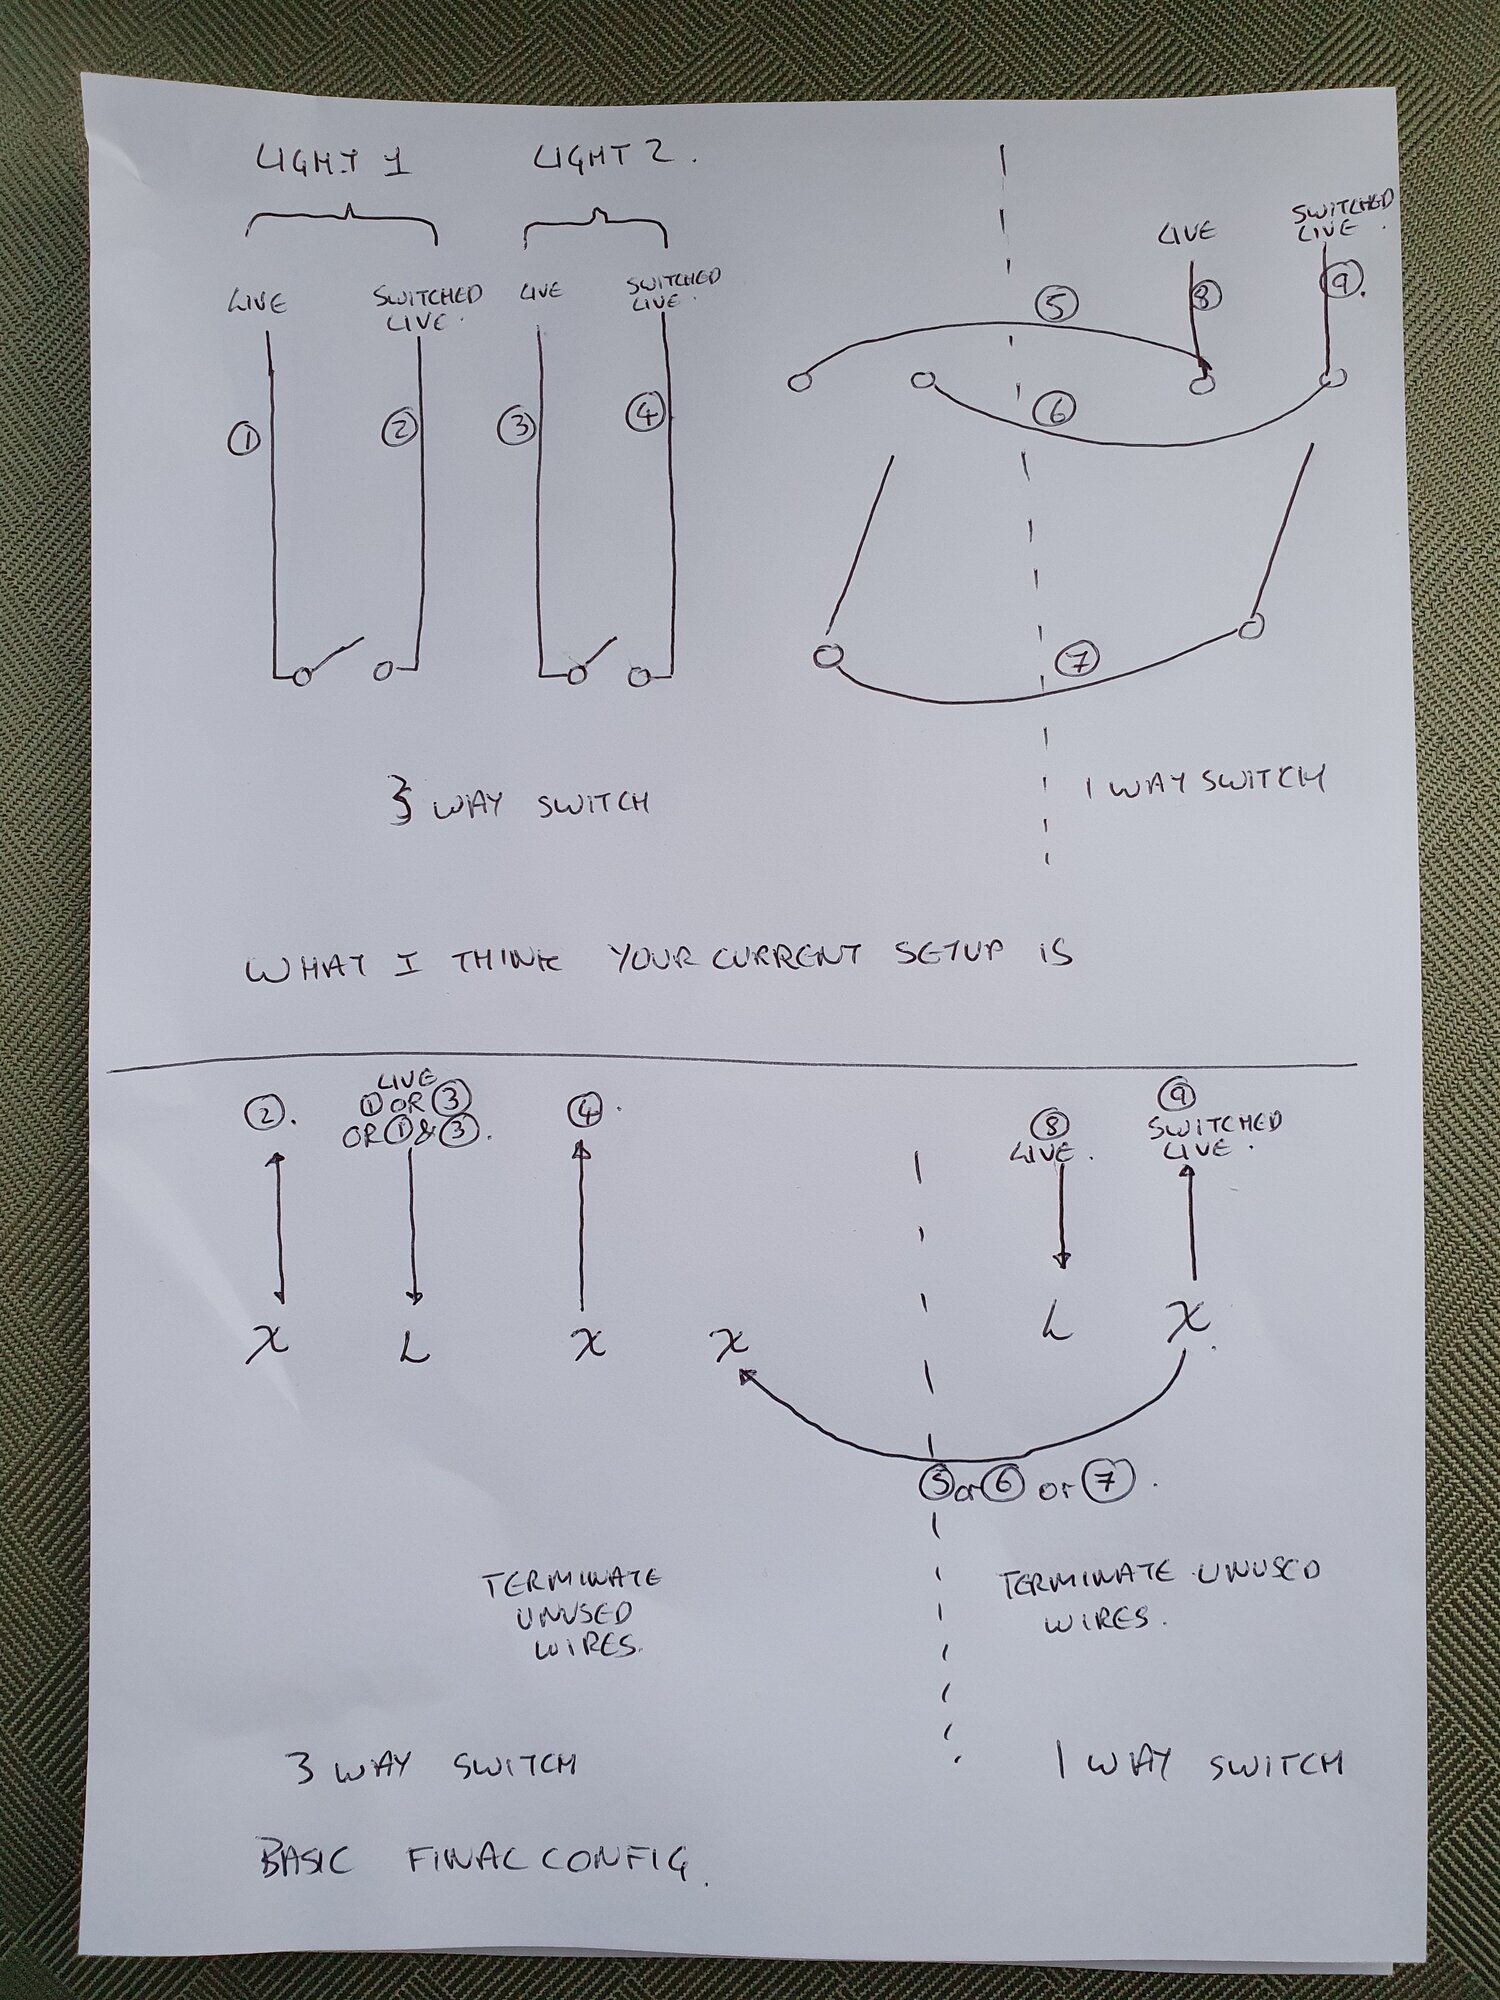 LIGHT 1
LIGHT 2.
LIVE
SWITCHED
LIVE.
LIVE
SWITCHED
LIVE.
LIVE
SWITCHED
LIVE.
①
②
③
④
⑤
⑥
⑦
⑧
⑨.
3 WAY SWITCH
1 WAY SWITCH
WHAT I THINK YOUR CURRENT SETUP IS
②.
LIVE
① OR ③
OR ① & ③.
④.
⑧
LIVE.
⑨
SWITCHED
LIVE.
X
L
X
X
L
X
⑤ or ⑥ or ⑦.
TERMINATE
UNUSED
WIRES.
TERMINATE UNUSED
WIRES.
3 WAY SWITCH
1 WAY SWITCH
BASIC FINAL CONFIG.